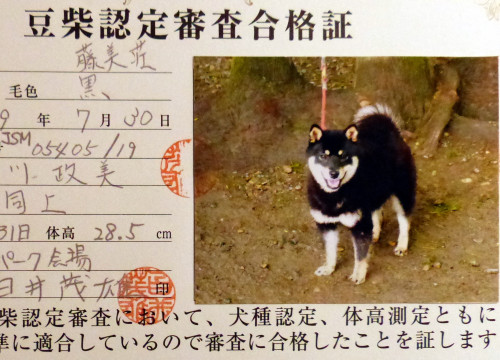 豆柴認定審査合格証
藤美荘
毛色 黒
9 年 7 月 30 日
JSM 05405/19
川 政美
同上
31日 体高 28.5 cm
パーク会場
臼井茂 印
柴認定審査において、犬種認定、体高測定ともに
準に適合しているので審査に合格したことを証します